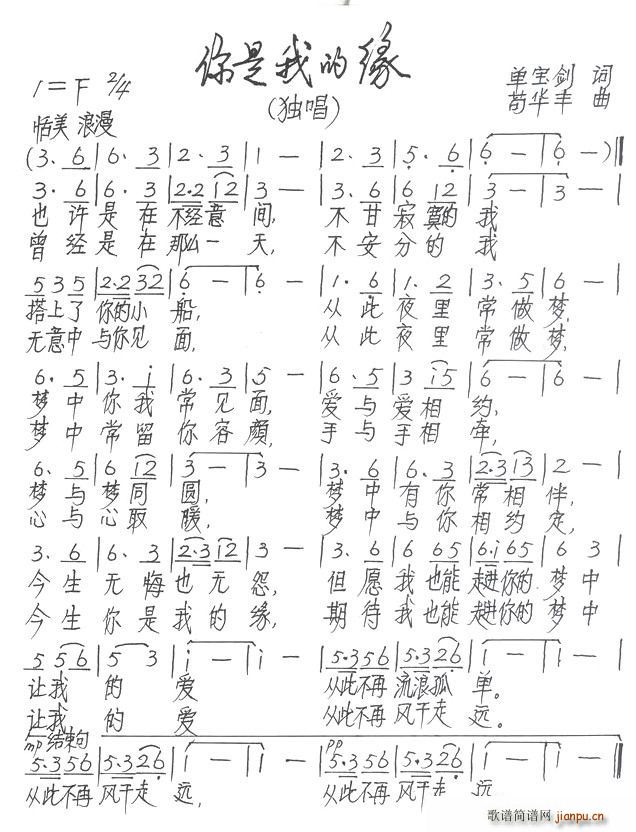 你是我的缘
(独唱)
1=F 2/4
单宝剑 词
苟华丰 曲
恬美 浪漫
(3. 6|6. 3|2. 3|1 —|2. 3|5. 6|6 —|6 —)‖
3. 6|6. 3|2·2 12|3 —|3. 6|6 12|3 —|3 —|
也许是在不经意间, 不甘寂寞的我
曾经是在那么一天, 不安分的我
5 3 5|2·2 32|6 —|6 —|1. 6|1. 2|3. 5|6 —|
搭上了你的小船, 从此夜里常做梦,
无意中与你见面, 从此夜里常做梦,
6. 5|3. i|6. 3|5 —|6. 5|3 i5|6 —|6 —|
梦中你我常见面, 爱与爱相约,
梦中常留你容颜, 手与手相牵,
6. 5|6 i2|3 —|3 —|3. 6|6. 3|2·3 i3|2 —|
梦与梦同圆, 梦中有你常相伴,
心与心取暖, 梦中与你相约定,
3. 6|6. 3|2·3 12|3 —|3. 6|6 65|6·i 65|6 3|
今生无悔也无怨, 但愿我也能走进你的梦中
今生你是我的缘, 期待我也能走进你的梦中
5 56|5 3|i —|i —|5·3 56|5·3 26|1 —|1 —|
让我的爱 从此不再流浪孤单。
让我的爱 从此不再风干走远。
mp 结束句
pp
5·3 56|5·3 26|1 —|1 —|5·3 56|5·3 26|1 —|1 —‖
从此不再风干走远, 从此不再风干走远
歌谱简谱网
jianpu.cn